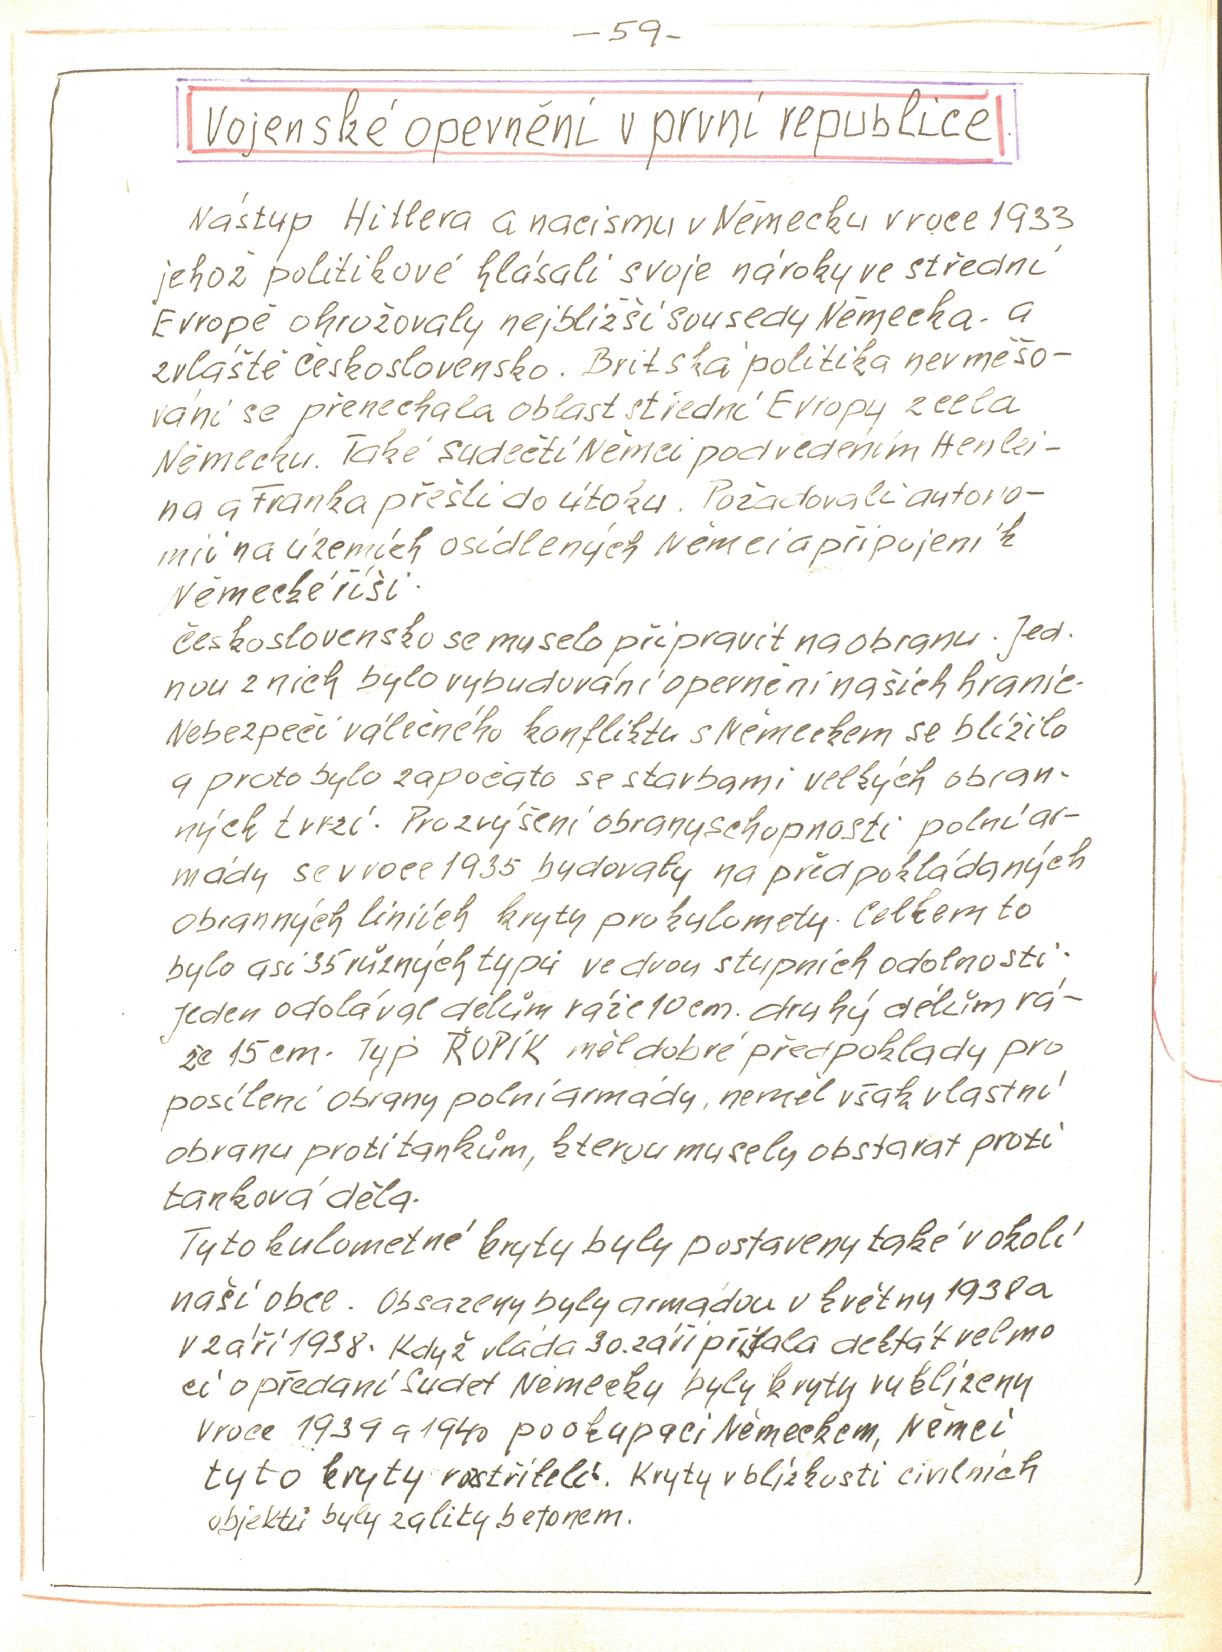 -59-
Vojenské opevnění v první republice
Nástup Hitlera a nacismu v Německu v roce 1933
jehož politikové hlásali svoje nároky ve střední
Evropě ohrožovaly nejbližší sousedy Německa - a
zvláště Československo. Britská politika nevměšo-
vání se přenechala oblast střední Evropy zcela
Německu. Také Sudečtí Němci pod vedením Henlei-
na a Franka přešli do útoku. Požadovali autono-
mii na územích osídlených Němci a připojení k
Německé říši.
Československo se muselo připravit na obranu. Jed-
nou z nich bylo vybudování opevnění našich hranic.
Nebezpečí válečného konfliktu s Německem se blížilo
a proto bylo započato se stavbami velkých obran-
ných tvrzí. Pro zvýšení obranyschopnosti polní ar-
mády se v roce 1935 budovaly na předpokládaných
obranných liniích kryty pro kulomety. Celkem to
bylo asi 35 různých typů ve dvou stupních odolnosti.
Jeden odolával dělům ráže 10 cm. druhý dělům rá-
že 15 cm. Typ ŘOPÍK měl dobré předpoklady pro
posílení obrany polní armády, neměl však vlastní
obranu proti tankům, kterou musely obstarat proti
tanková děla.
Tyto kulometné kryty byly postaveny také v okolí
naší obce. Obsazeny byly armádou v květnu 1938 a
v září 1938. Když vláda 30. září přijala diktát velmo
cí o předání Sudet Německu byly kryty vyklizeny
V roce 1939 a 1940 po okupaci Německem, Němci
tyto kryty rozstříleli. Kryty v blízkosti civilních
objektů byly zality betonem.